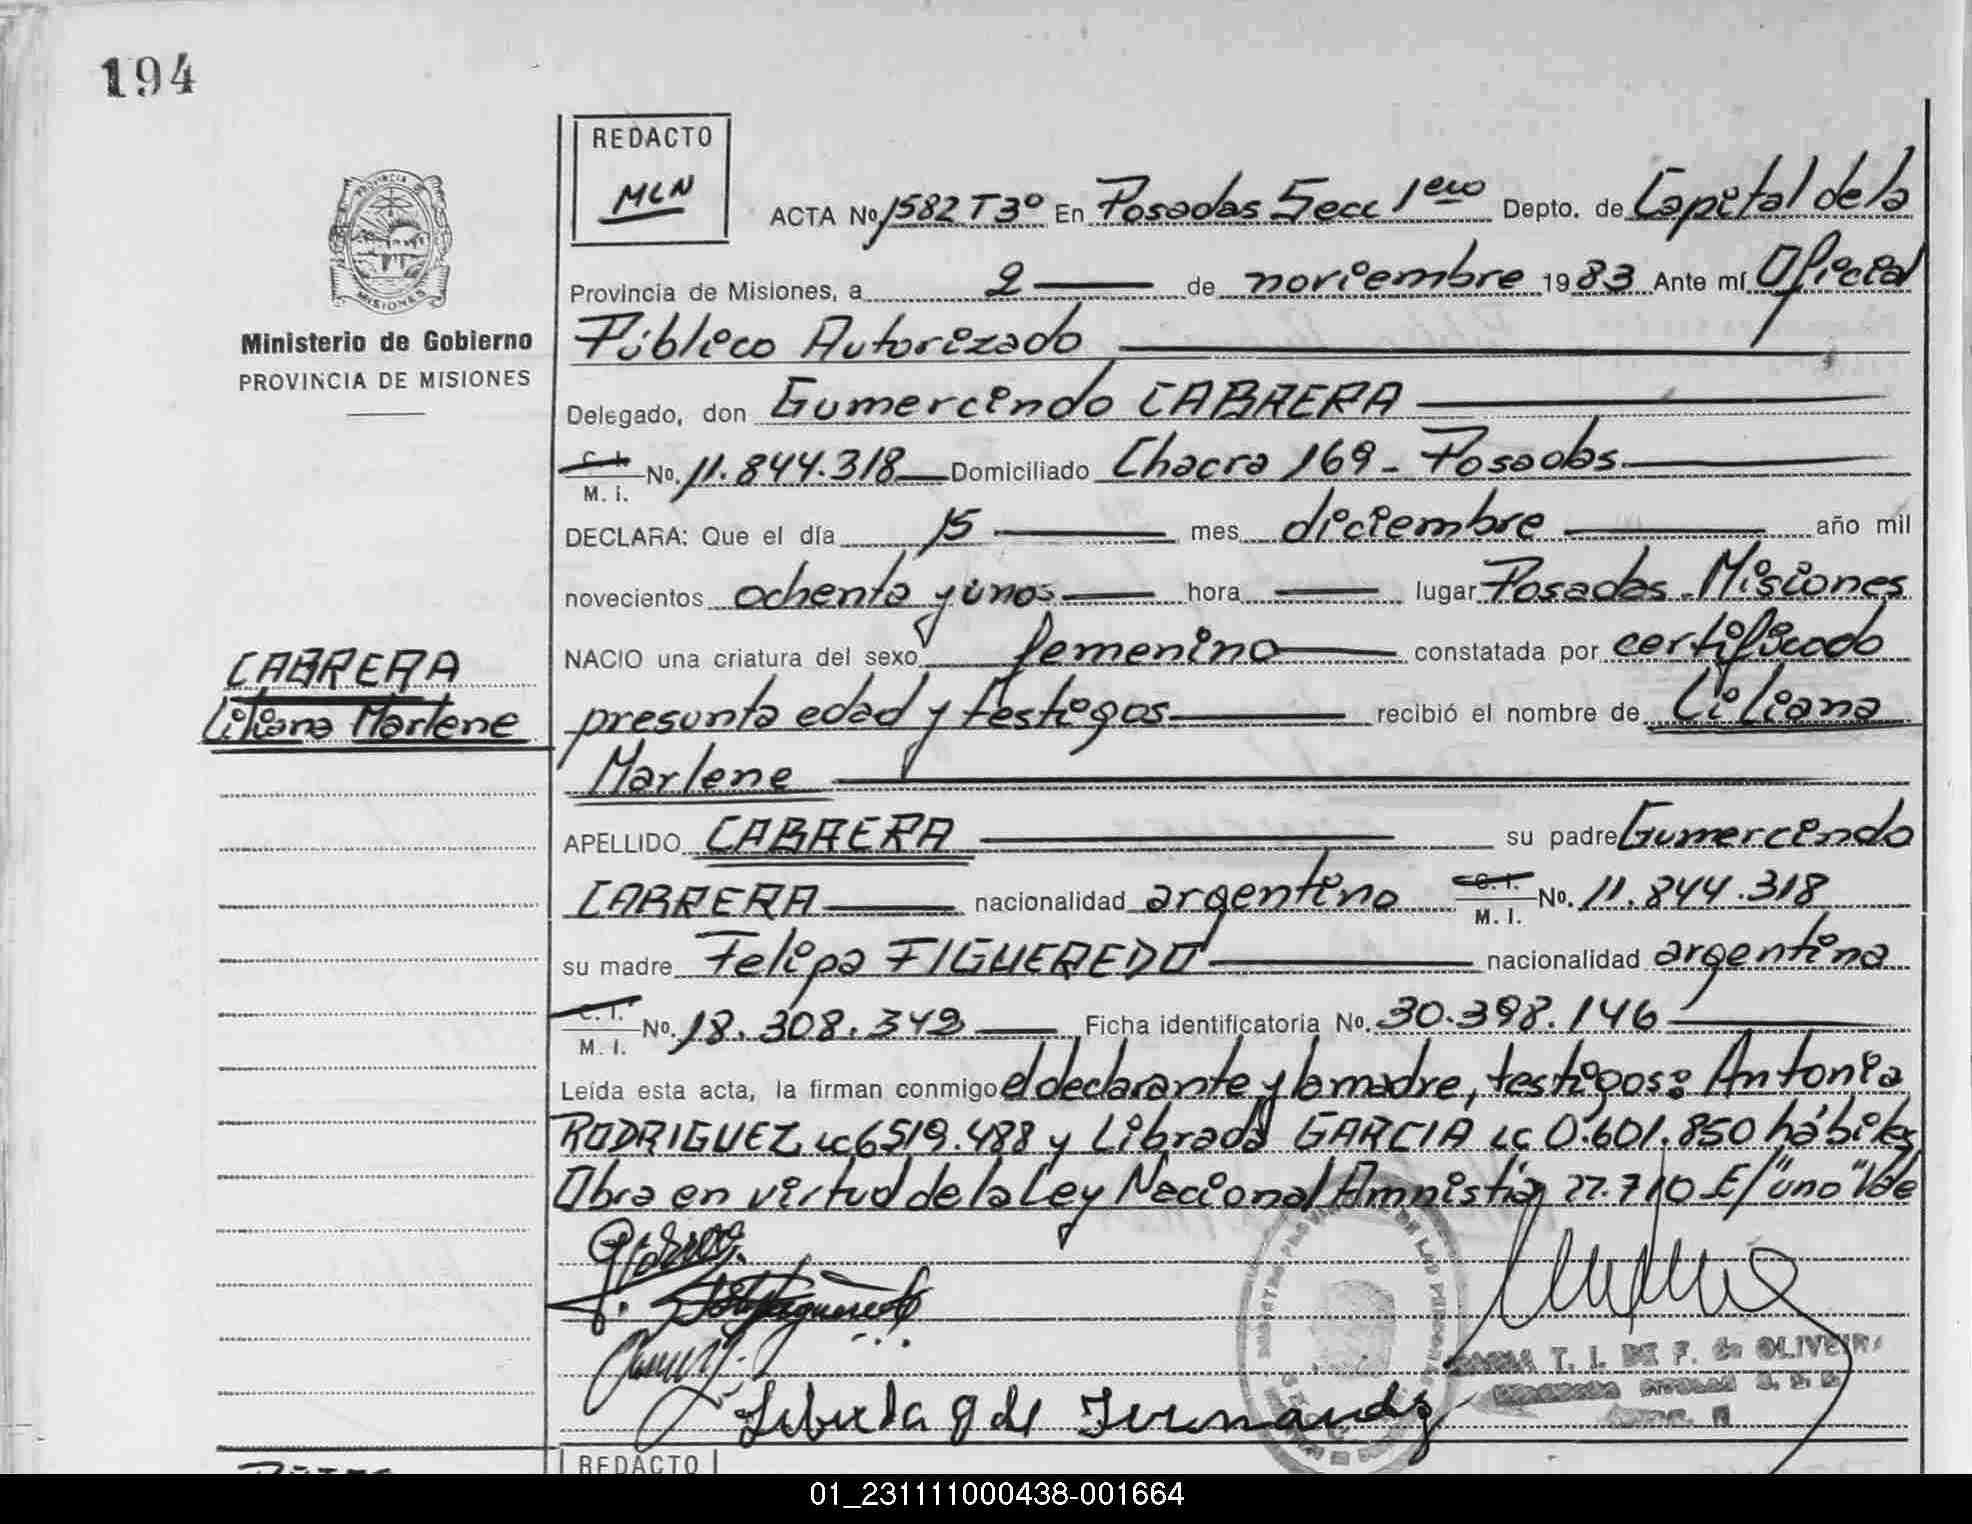 194
REDACTO
MLN
PROVINCIA DE
MISIONES
Ministerio de Gobierno
PROVINCIA DE MISIONES
ACTA No 1582 T 3º En Posadas Secc 1era Depto. de Capital de la
Provincia de Misiones, a 2 de noviembre 1983 Ante mí Oficial
Público Autorizado
Delegado, don Gumercindo CABRERA
C. I. M. I. No. 11.844.318 Domiciliado Chacra 169 - Posadas
DECLARA: Que el día 15 mes diciembre año mil
novecientos ochenta y uno hora lugar Posadas - Misiones
NACIO una criatura del sexo femenino constatada por certificado
presunta edad y testigos recibió el nombre de Liliana
Marlene
CABRERA
Liliana Marlene
APELLIDO CABRERA su padre Gumercindo
CABRERA nacionalidad argentino C. I. M. I. No. 11.844.318
su madre Felipa FIGUEREDO nacionalidad argentina
C. I. M. I. No. 18.308.349 Ficha identificatoria No. 30.398.146
Leída esta acta, la firman conmigo el declarante y la madre, testigos: Antonia
RODRIGUEZ LC 6519.488 y Librada GARCIA LC 0.601.850 hábiles
Obra en virtud de la Ley Nacional Amnistía 22.710 E/"uno" Vale
T. I. DE F. de OLIVEIRA
REDACTO
01_231111000438-001664